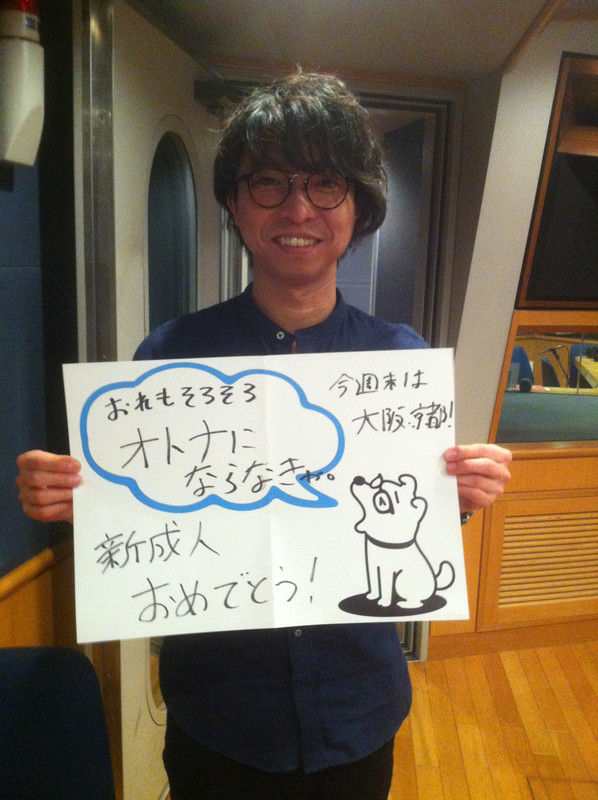 おれもそろそろ
オトナに
ならなきゃ。
今週末は
大阪・京都!
新成人
おめでとう!
A